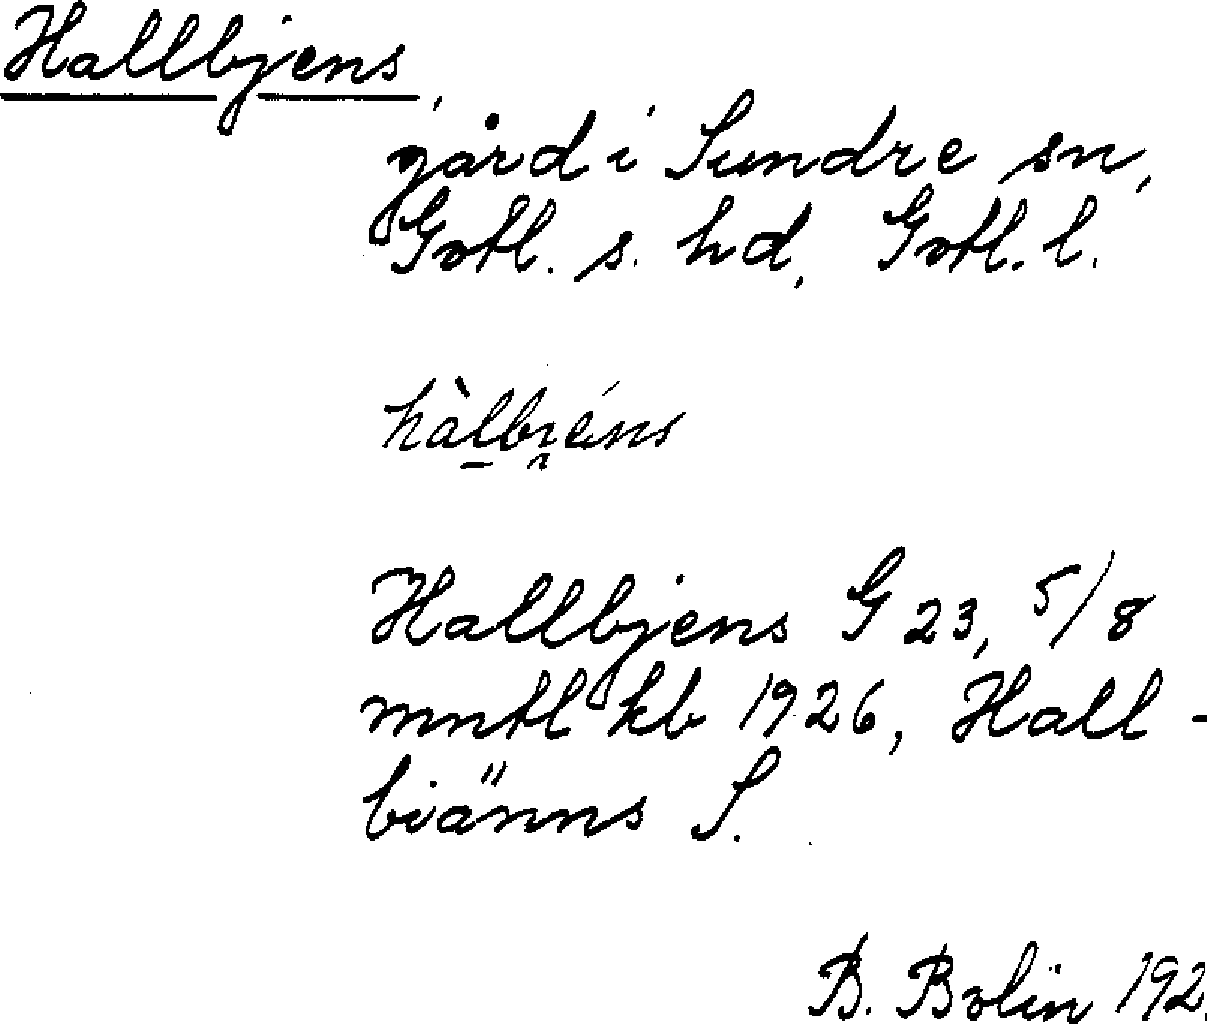 Hallbjens,
gård i Sundre sn,
Gotl. s. hd, Gotl. l.
Hallbjens G 23, 5/8
mntl kb 1926, Hall-
biänns S.
B. Bolin 192